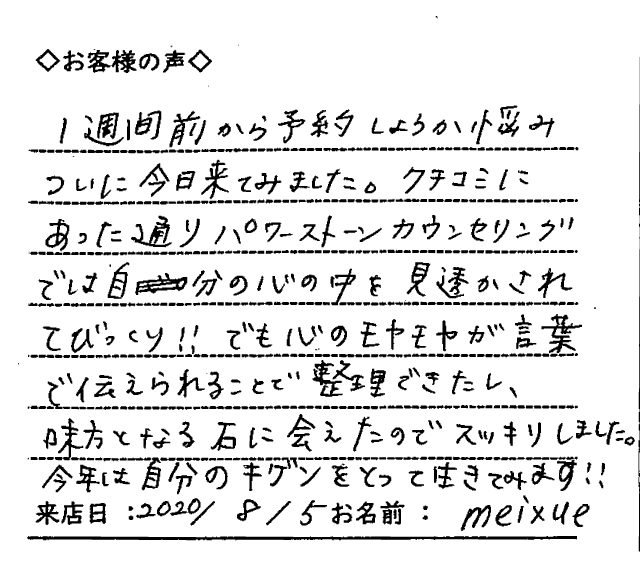 ◇お客様の声◇
1週間前から予約しようか悩み
ついに今日来てみました。クチコミに
あった通りパワーストーンカウンセリング
では自分の心の中を見透かされ
てびっくり!!でも心のモヤモヤが言葉
で伝えられることで整理できたし、
味方となる石に会えたのでスッキリしました。
今年は自分のキゲンをとって生きてみます!!
来店日:2020/8/5お名前:meixue